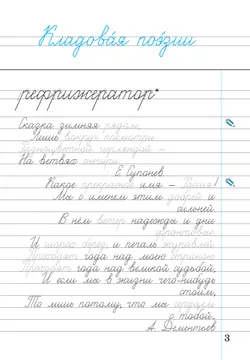 Кладова́я поэ́зии
рефрижератор*
Сказка зимняя рядом,
Лишь вокруг посмотри:
Разноцветной гирляндой –
На ветвях снегири.
Е. Супонев
Какое прекрасное имя – Россия!
Мы с именем этим добрей и
сильней.
В нём ветер надежды и дни
фронтовые,
И шорох берёз, и печаль журавлей.
Проходят года над моею страною,
Проходят года над великой судьбой,
И если мы в жизни чего-нибудь
стоим,
То лишь потому, что мы сердцем
с тобой.
А. Дементьев
3